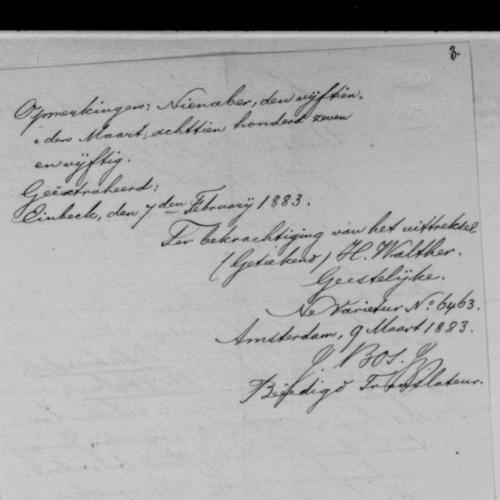 3.
Opmerkingen: Nienaber, den vijftien-
den Maart, achttien honderd zeven
en vijftig.
Geëxtraheerd:
Einbeck, den 7den Februarij 1883.
Ter bekrachtiging van het uittreksel
(Geteekend) H. Walther.
Geestelijke.
Ne Varietur No 6463.
Amsterdam, 9 Maart 1883.
J. Bos.
Beëedigd Translateur.